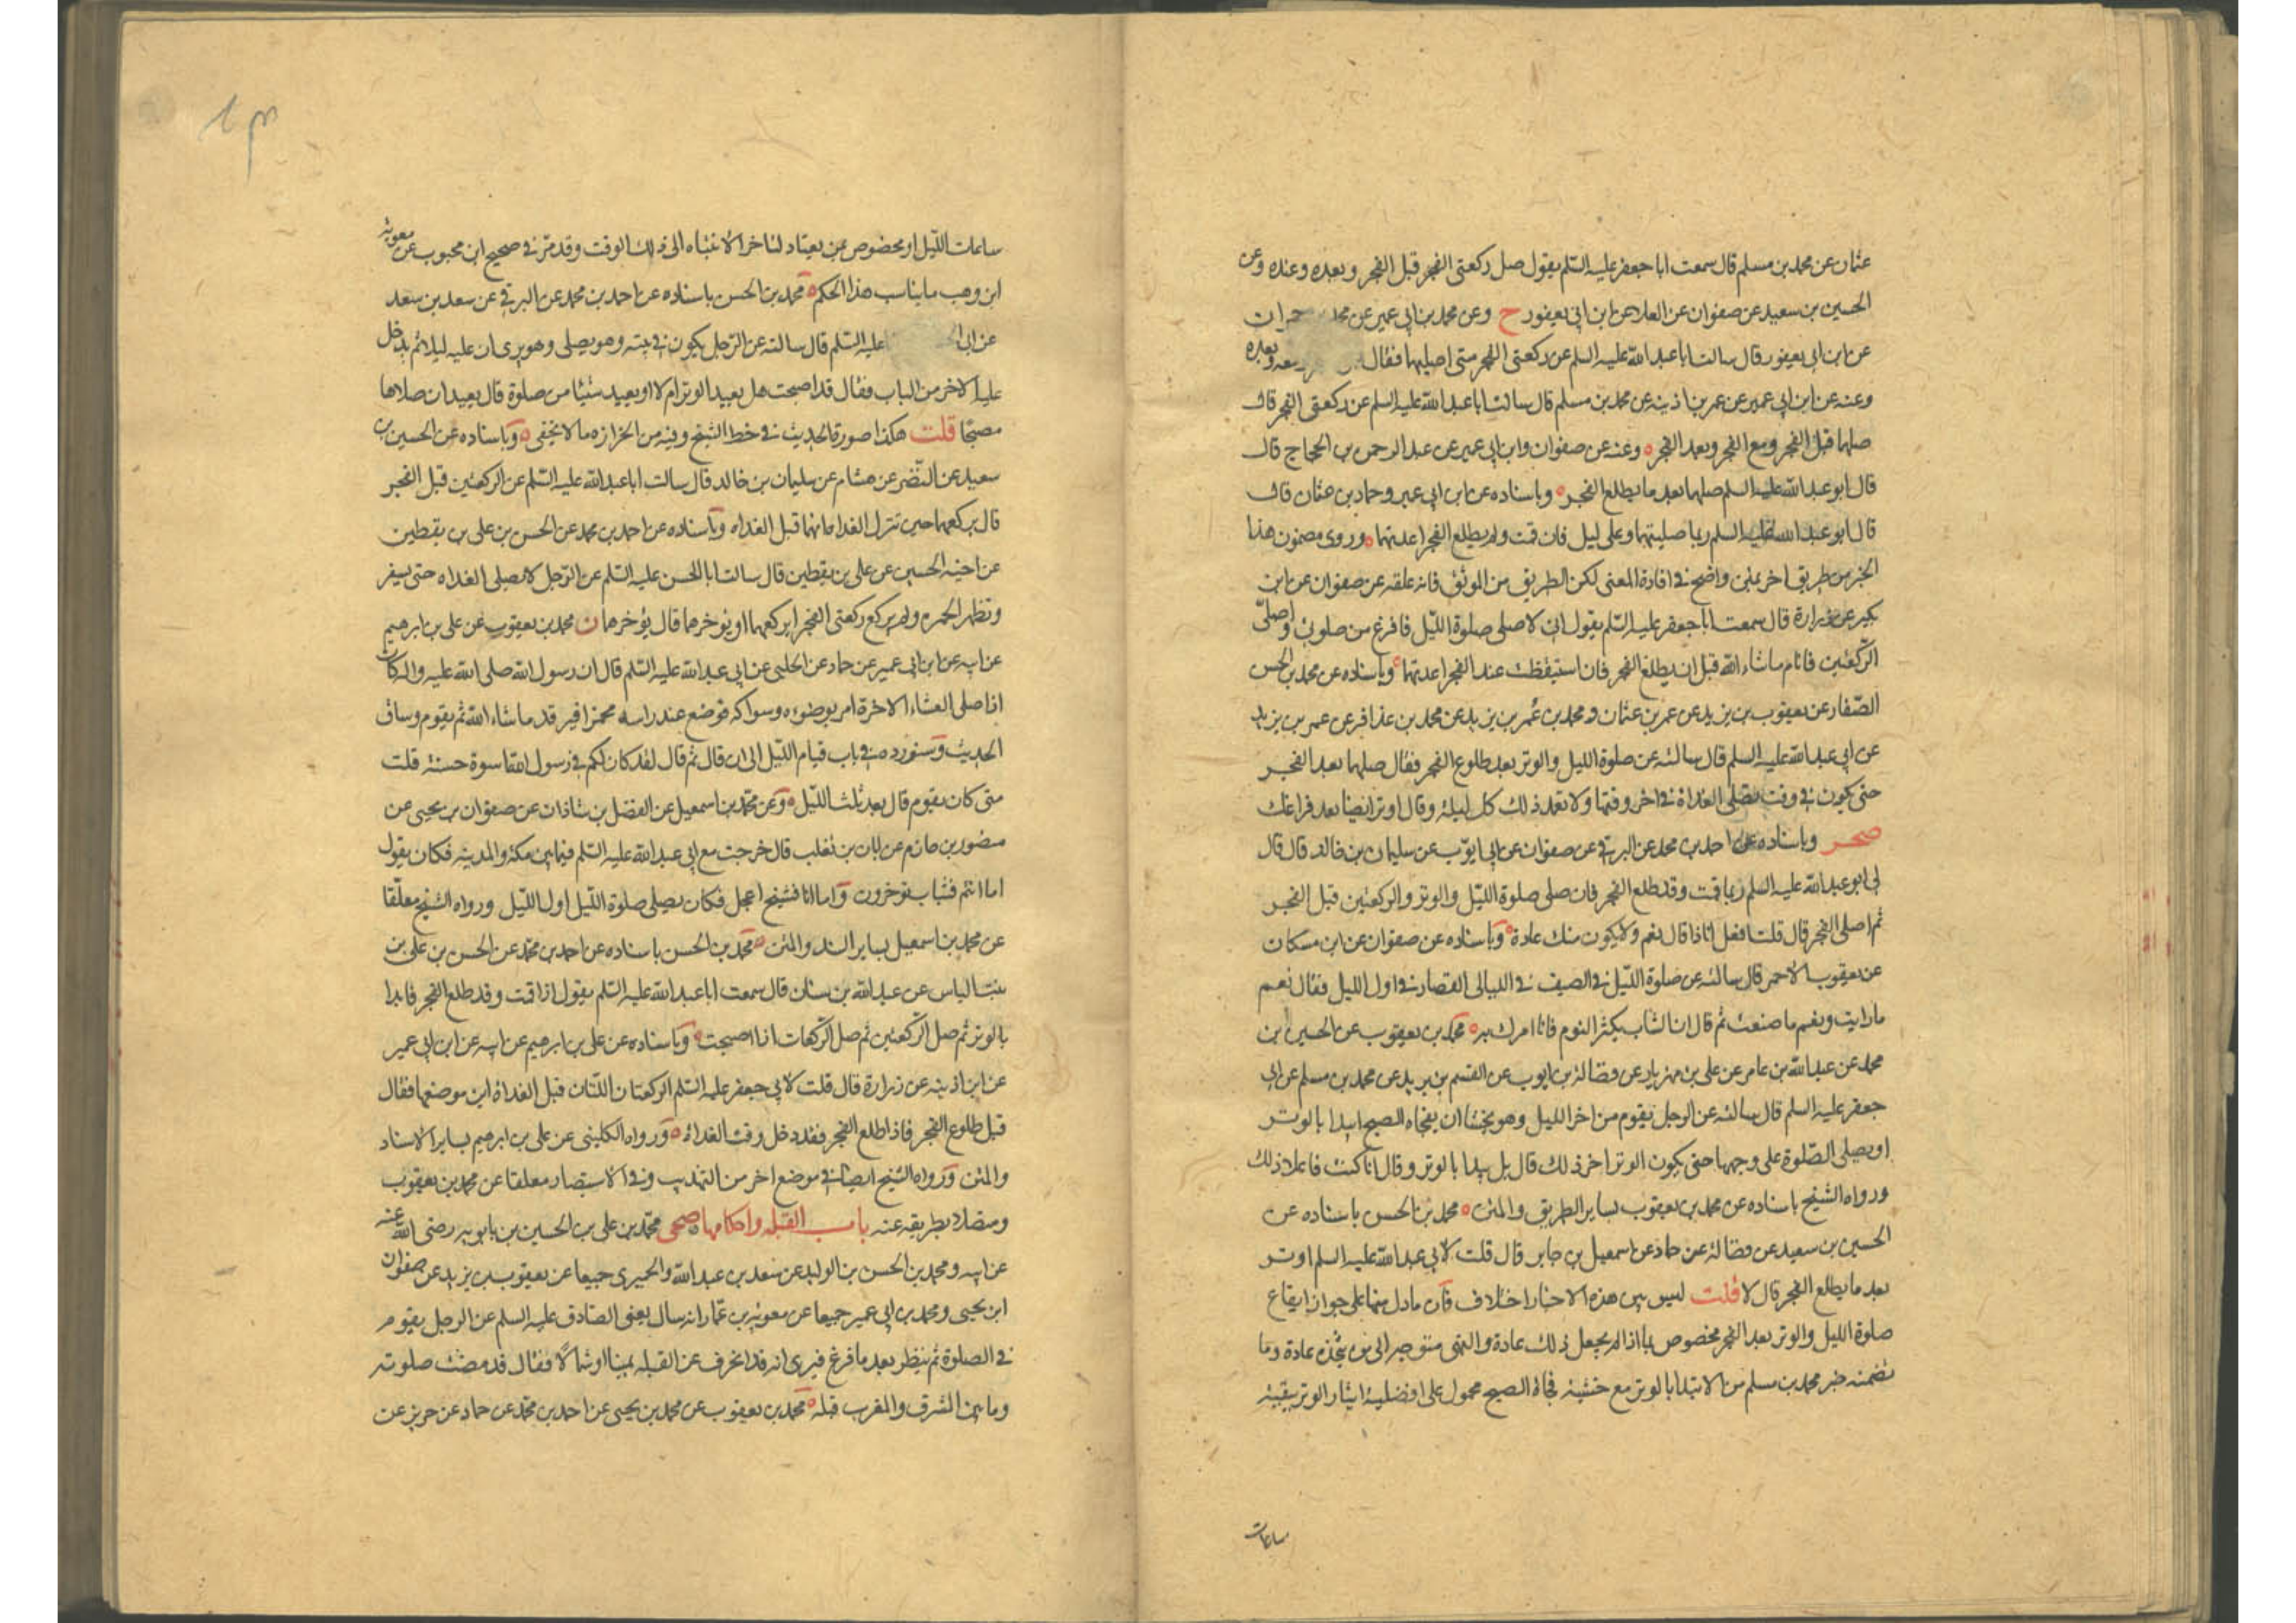 عثمان عن محمد بن مسلم قال سمعت ابا جعفر عليه السلم يقول صل ركعتى الفجر قبل الفجر وبعده وعنده وعن
الحسين بن سعيد عن صفوان عن العلا عن ابن ابى يعفور ح وعن محمد بن ابى عمير عن محمد حمران
عن ابن ابى يعفور قال سالت ابا عبد الله عليه السلم عن ركعتى الفجر متى اصليهما فقال معه وبعده
وعنه عن ابن ابى عمير عن عمر بن اذينه عن محمد بن مسلم قال سالت ابا عبد الله عليه السلم عن ركعتى الفجر قال
صلهما قبل الفجر ومع الفجر وبعد الفجر وعنه عن صفوان وابن ابى عمير عن عبد الرحمن بن الحجاج قال
قال ابو عبد الله عليه السلم صلهما بعد ما يطلع الفجر وباسناده عن ابن ابى عمير وحماد بن عثمان قال
قال ابو عبد الله عليه السلم ربما صليتهما وعلى ليل فان قمت ولم يطلع الفجر اعدتهما وروى مضمون هذا
الخبر من طريق اخر بمتن واضح فى افادة المعنى لكن الطريق من الموثق فانه علقه عن صفوان عن ابن
بكير عن زرارة قال سمعت ابا جعفر عليه السلم يقول انى لاصلى صلوة الليل فافرغ من صلوتى واصلى
الركعتين فانام ماشاء الله قبل ان يطلع الفجر فان استيقظت عند الفجر اعدتهما وباسناده عن محمد بن الحسن
الصفار عن يعقوب بن يزيد عن عمر بن عثمان ومحمد بن عمر بن يزيد عن محمد بن عذافر عن عمر بن يزيد
عن ابى عبد الله عليه السلم قال سالته عن صلوة الليل والوتر بعد طلوع الفجر فقال صلها بعد الفجر
حتى يكون فى وقت تصلى الغداة فى اخر وقتها ولا تعمد ذلك كل ليلة وقال اوتر ايضا بعد فراغك
صحر وباسناده عن احمد بن محمد عن البرقى عن صفوان عن ابى ايوب عن سليمان بن خالد قال قال
لى ابو عبد الله عليه السلم ربما قمت وقد طلع الفجر فان صلى صلوة الليل والوتر والركعتين قبل الفجر
ثم اصلى الفجر قال قلت افعل انا ذا قال نعم ولا يكون منك عادة وباسناده عن صفوان عن ابن مسكان
عن يعقوب الاحمر قال سالته عن صلوة الليل فى الصيف فى الليالى القصار فى اول الليل فقال نعم
ما رايت ونعم ما صنعت ثم قال ان الشاب يكثر النوم فانا امرك به محمد بن يعقوب عن الحسين بن
محمد عن عبد الله بن عامر عن على بن مهزيار عن فضالة بن ايوب عن القسم بن بريد عن محمد بن مسلم عن ابى
جعفر عليه السلم قال سالته عن الرجل يقوم من اخر الليل وهو يخشا ان يفجاه الصبح ايبدا بالوتر
او يصلى الصلوة على وجهها حتى يكون الوتر اخر ذلك قال بل يبدا بالوتر وقال انا كنت فاعلا ذلك
ورواه الشيخ باسناده عن محمد بن يعقوب بساير الطريق والمتن محمد بن الحسن باسناده عن
الحسين بن سعيد عن فضالة عن حماد عن اسمعيل بن جابر قال قلت لابى عبد الله عليه السلم اوتر
بعد ما يطلع الفجر قال لا قلت ليس بين هذه الاخبار اختلاف فان مادل منها على جواز ايقاع
صلوة الليل والوتر بعد الفجر مخصوص بما اذا لم يجعل ذلك عادة والنهى متوجه الى من يتخذه عادة وما
تضمنه خبر محمد بن مسلم من الابتدا بالوتر مع خشية فجاة الصبح محمول على افضلية ايثار الوتر ببقية
ساعات
ساعات الليل او مخصوص بمن يعتاد لتاخر الانتباه الى ذلك الوقت وقد مر فى صحيح ابن محبوب عن معوية
ابن وهب ما يناسب هذا الحكم محمد بن الحسن باسناده عن احمد بن محمد عن البرقى عن سعد بن سعد
عن ابى عليه السلم قال سالته عن الرجل يكون فى بيته وهو يصلى وهو يرى ان عليه ليلا ثم يدخل
عليه الاخر من الباب فقال قد اصبحت هل يعيد الوتر ام لا او يعيد شيئا من صلوة قال يعيد ان صلاها
مصبحا قلت هكذا صورة الحديث فى خط الشيخ وفيه من الحزازه ما لا يخفى وباسناده عن الحسين بن
سعيد عن النضر عن هشام عن سليمان بن خالد قال سالت ابا عبد الله عليه السلم عن الركعتين قبل الفجر
قال يركعهما حين تترل الغداة انهما قبل الغداه وباسناده عن احمد بن محمد عن الحسن بن على بن يقطين
عن اخيه الحسين عن على بن يقطين قال سالت ابا الحسن عليه السلم عن الرجل لا يصلى الغداه حتى يسفر
وتظهر الحمره ولم يركع ركعتى الفجر ايركعهما او يوخرهما قال يؤخرهما ن محمد بن يعقوب عن على بن ابرهيم
عن ابيه عن ابن ابى عمير عن حماد عن الحلبى عن ابى عبد الله عليه السلم قال ان رسول الله صلى الله عليه واله كان
اذا صلى العشاء الاخرة امر بوضوءه وسواكه فوضع عند راسه مخمرا فيرقد ماشاء الله ثم يقوم وساق
الحديث وسنورده فى باب قيام الليل الى ان قال ثم قال لقد كان لكم فى رسول الله اسوة حسنة قلت
متى كان يقوم قال بعد ثلث الليل وعن محمد بن اسمعيل عن الفضل بن شاذان عن صفوان بن يحيى عن
منصور بن حازم عن ابان بن تغلب قال خرجت مع ابى عبد الله عليه السلم فيما بين مكة والمدينه فكان يقول
اما انتم فشباب توخرون واما انا فشيخ اعجل فكان يصلى صلوة الليل اول الليل ورواه الشيخ معلقا
عن محمد بن اسمعيل بساير السند والمتن محمد بن الحسن باسناده عن احمد بن محمد عن الحسن بن على بن
بنت الياس عن عبد الله بن سنان قال سمعت ابا عبد الله عليه السلم يقول اذا قمت وقد طلع الفجر فابدا
بالوتر ثم صل الركعتين ثم صل الركعات اذا اصبحت وباسناده عن على بن ابرهيم عن ابيه عن ابن ابى عمير
عن ابن اذينه عن زرارة قال قلت لابى جعفر عليه السلم الركعتان اللتان قبل الغداة اين موضعهما فقال
قبل طلوع الفجر فاذا طلع الفجر فقد دخل وقت الغداة ورواه الكلينى عن على بن ابرهيم بساير الاسناد
والمتن ورواه الشيخ ايضا فى موضع اخر من التهذيب وفى الاستبصار معلقا عن محمد بن يعقوب
ومتصلا بطريقه عنه باب القبله واحكامها صحى محمد بن على بن الحسين بن بابويه رضى الله عنه
عن ابيه ومحمد بن الحسن بن الوليد عن سعد بن عبد الله والحميرى جميعا عن يعقوب بن يزيد عن صفوان
ابن يحيى ومحمد بن ابى عمير جميعا عن معوية بن عمار انه سال يعنى الصادق عليه السلم عن الرجل يقوم
فى الصلوة ثم ينظر بعد ما فرغ فيرى انه قد انحرف عن القبله يمينا او شمالا فقال قد مضت صلوته
وما بين المشرق والمغرب قبلة محمد بن يعقوب عن محمد بن يحيى عن احمد بن محمد عن حماد عن حريز عن